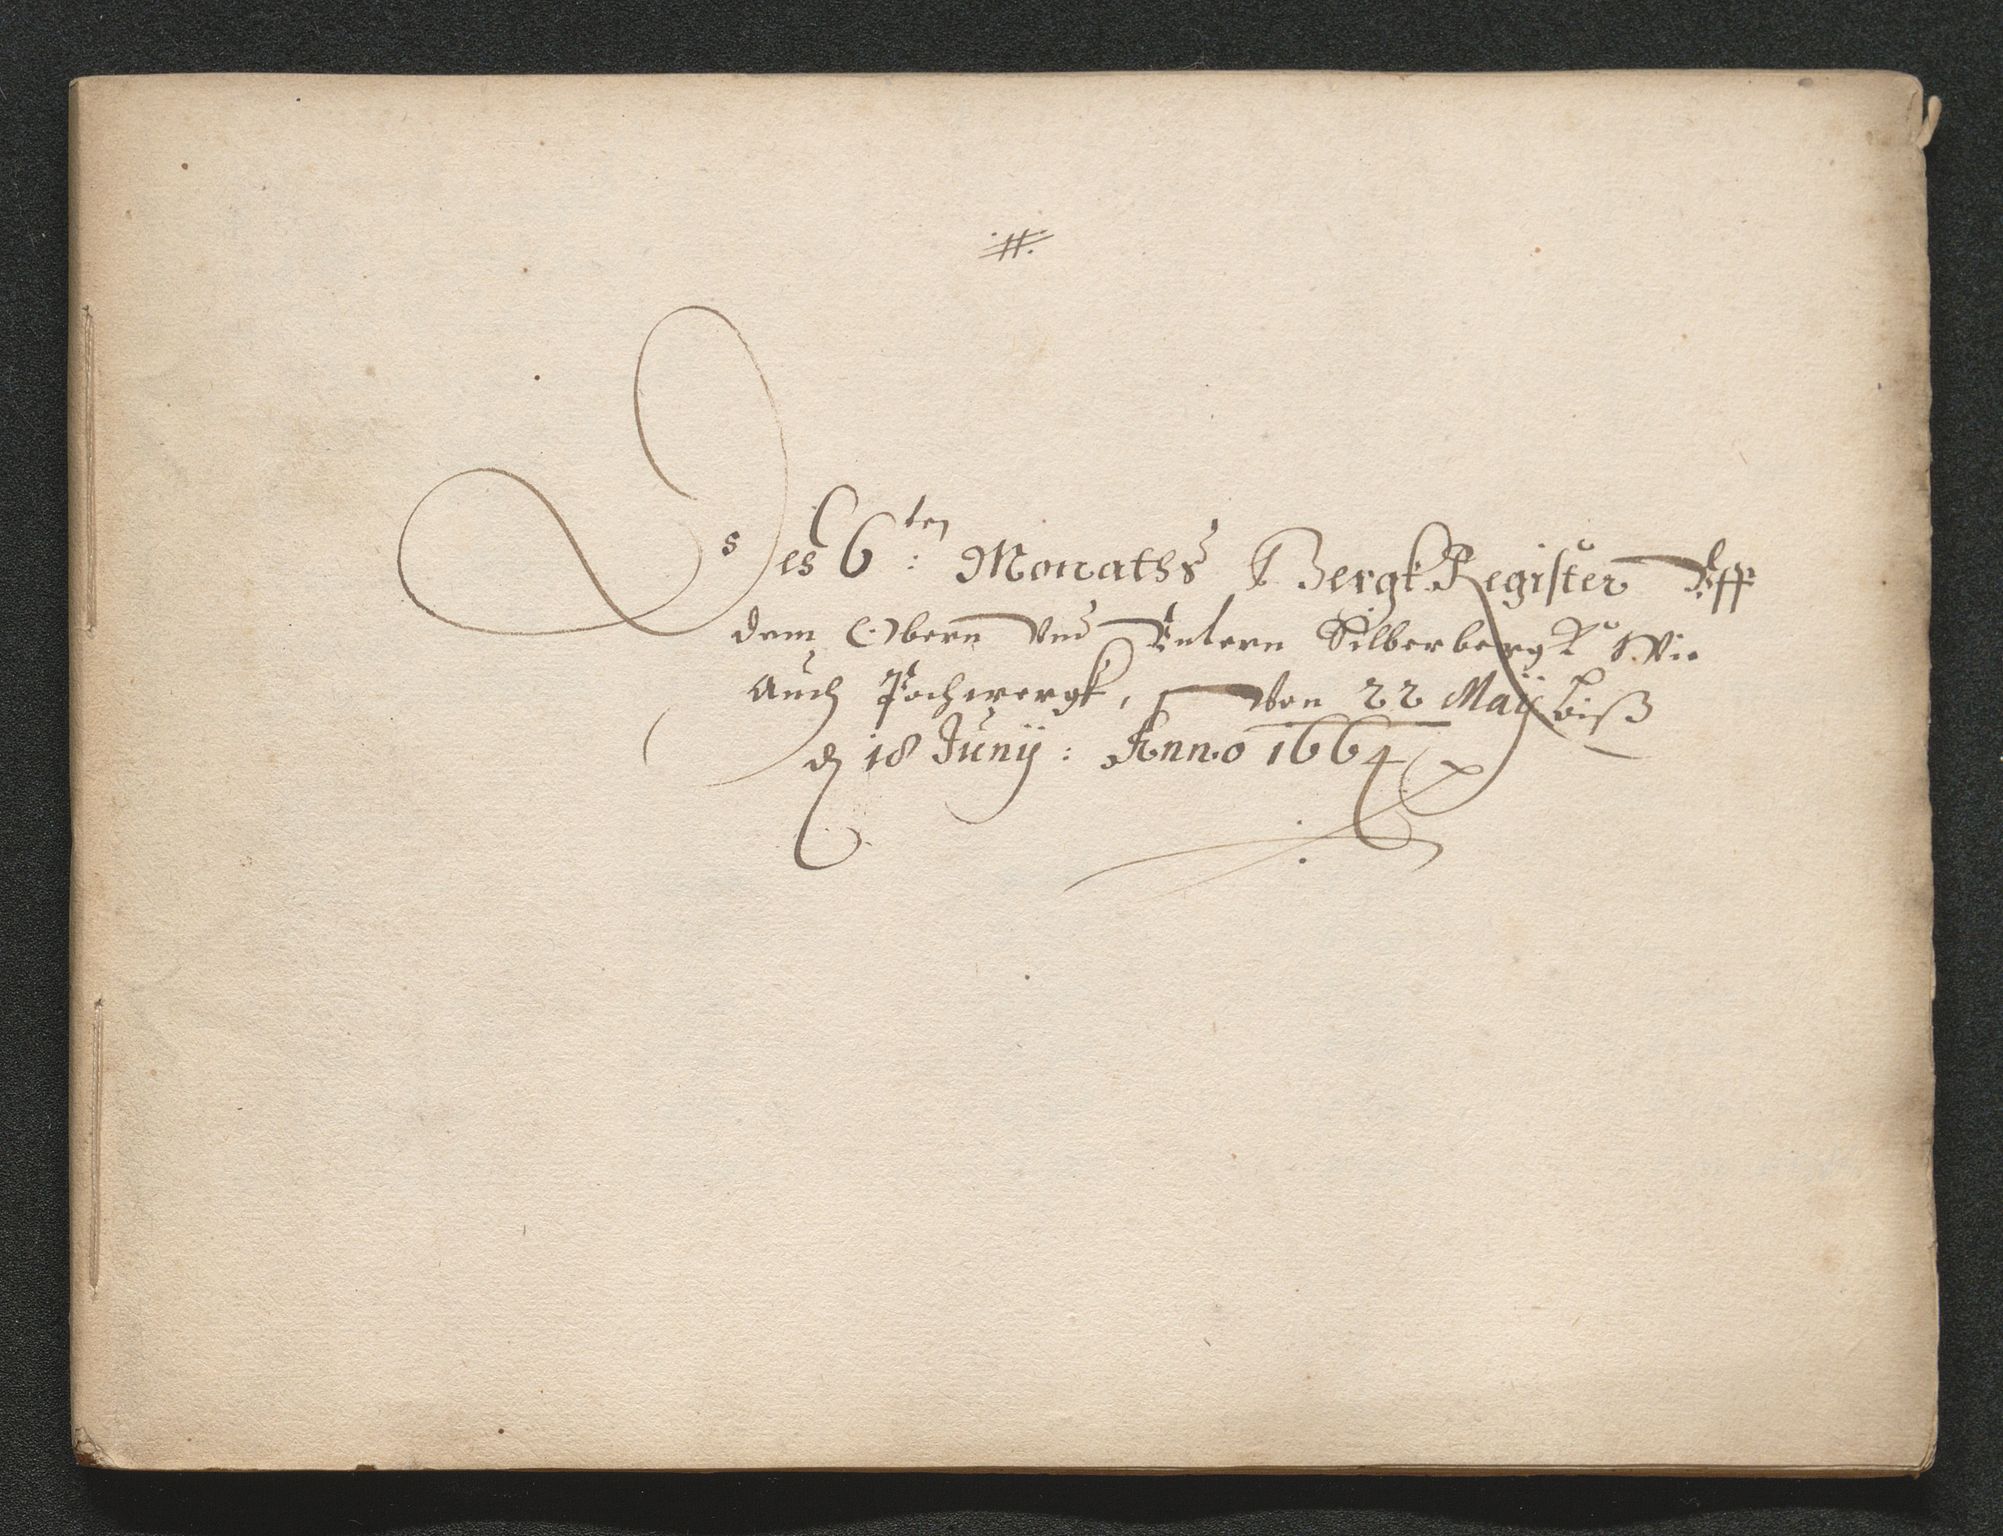 #
Des 6ten: Monaths BergkRegister Vff
dem Obern vnd Vntern Silberbergk Wie
Auch Pochwergk, Von 22 Maij biß
d 18 Junij: Anno 1664